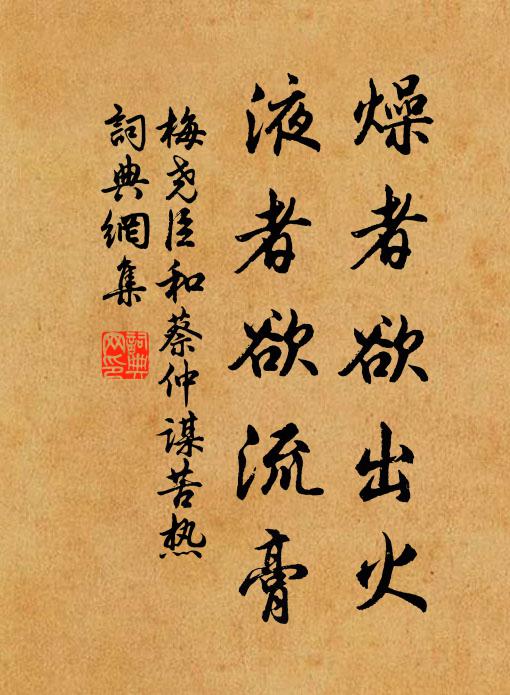 燥者欲出火
液者欲流膏
梅尧臣和蔡仲谋苦热
詞典網集
詞典
网印